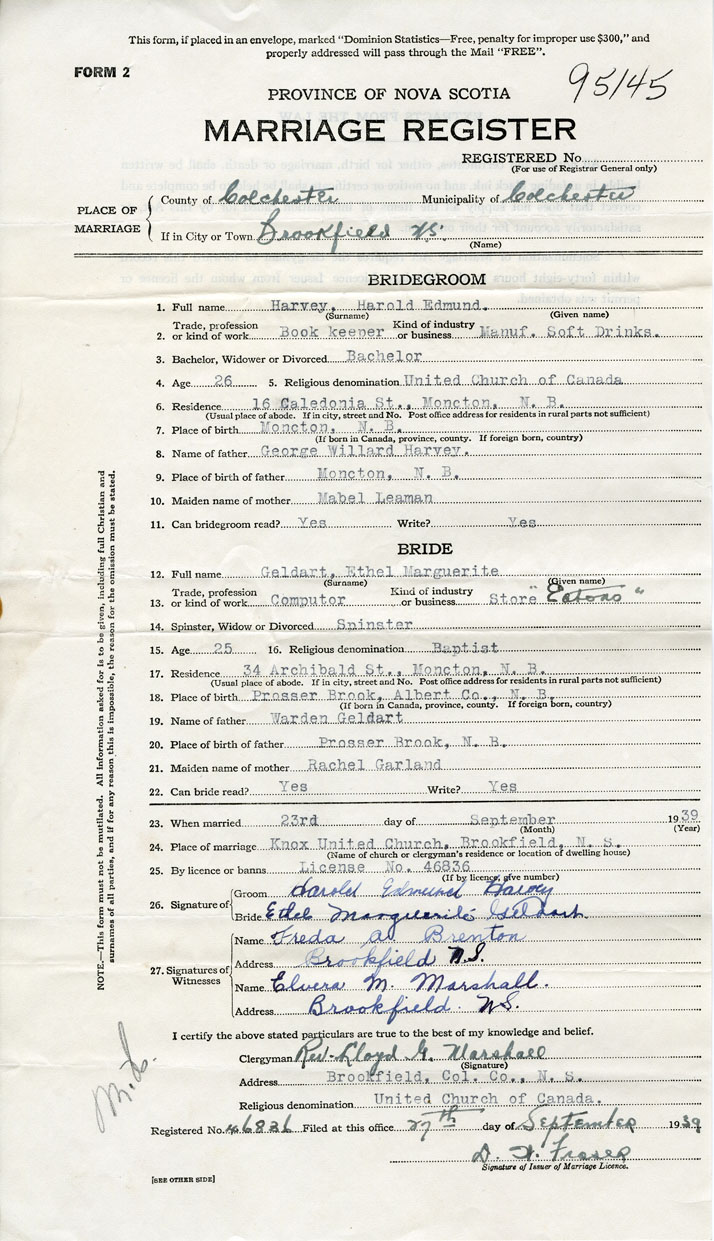 This form, if placed in an envelope, marked “Dominion Statistics—Free, penalty for improper use $300,” and
properly addressed will pass through the Mail “FREE”.
FORM 2
95145
PROVINCE OF NOVA SCOTIA
MARRIAGE REGISTER
REGISTERED No.
(For use of Registrar General only)
PLACE OF MARRIAGE
County of Colchester Municipality of Colchester
If in City or Town Brookfield NS.
(Name)
BRIDEGROOM
1. Full name Harvey, Harold Edmund.
(Surname) (Given name)
2. Trade, profession or kind of work Book keeper Kind of industry or business Manuf. Soft Drinks.
3. Bachelor, Widower or Divorced Bachelor
4. Age 26 5. Religious denomination United Church of Canada
6. Residence 16 Caledonia St., Moncton, N. B.
(Usual place of abode. If in city, street and No. Post office address for residents in rural parts not sufficient)
7. Place of birth Moncton, N. B.
(If born in Canada, province, county. If foreign born, country)
8. Name of father George Willard Harvey.
9. Place of birth of father Moncton, N. B.
10. Maiden name of mother Mabel Leaman
11. Can bridegroom read? Yes Write? Yes
BRIDE
12. Full name Geldart, Ethel Marguerite
(Surname) (Given name)
13. Trade, profession or kind of work Computor Kind of industry or business Store "Eatons"
14. Spinster, Widow or Divorced Spinster
15. Age 25 16. Religious denomination Baptist
17. Residence 34 Archibald St., Moncton, N. B.
(Usual place of abode. If in city, street and No. Post office address for residents in rural parts not sufficient)
18. Place of birth Prosser Brook, Albert Co., N. B.
(If born in Canada, province, county. If foreign born, country)
19. Name of father Warden Geldart
20. Place of birth of father Prosser Brook, N. B.
21. Maiden name of mother Rachel Garland
22. Can bride read? Yes Write? Yes
23. When married 23rd day of September 1939
(Month) (Year)
24. Place of marriage Knox United Church, Brookfield, N. S.
(Name of church or clergyman's residence or location of dwelling house)
25. By licence or banns License No. 46836
(If by licence, give number)
26. Signature of
Groom Harold Edmund Harvey
Bride Ethel Marguerite Geldart
27. Signatures of Witnesses
Name Freda A. Brenton
Address Brookfield N.S.
Name Elvera M. Marshall.
Address Brookfield. NS.
I certify the above stated particulars are true to the best of my knowledge and belief.
Clergyman Rev. Lloyd G. Marshall
(Signature)
Address Brookfield, Col. Co., N. S.
Religious denomination United Church of Canada.
Registered No. 46836 Filed at this office 27th day of September 1939
Signature of Issuer of Marriage Licence.
[SEE OTHER SIDE]
NOTE.—This form must not be mutilated. All information asked for is to be given, including full Christian and
surnames of all parties, and if for any reason this is impossible, the reason for the omission must be stated.